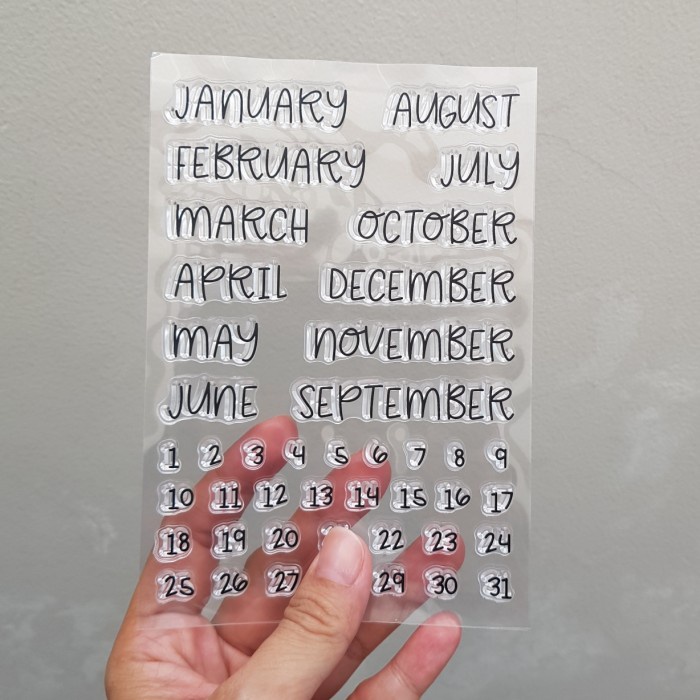 JANUARY AUGUST
FEBRUARY JULY
MARCH OCTOBER
APRIL DECEMBER
MAY NOVEMBER
JUNE SEPTEMBER
1 2 3 4 5 6 7 8 9
10 11 12 13 14 15 16 17
18 19 20 22 23 24
25 26 27 29 30 31